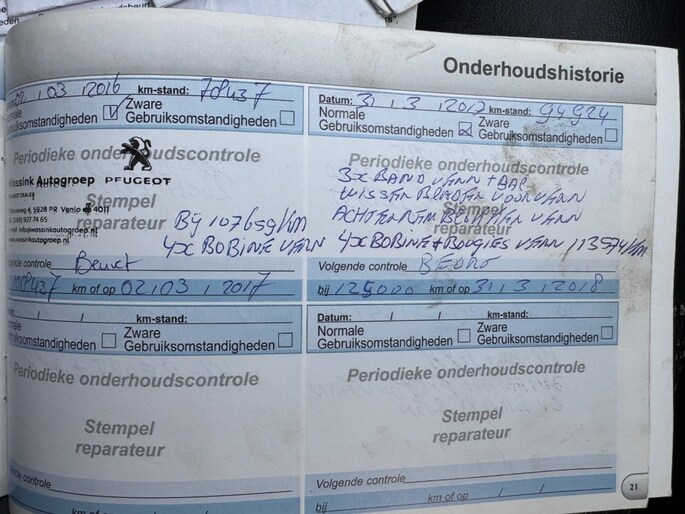 Onderhoudshistorie
02 , 03 , 2016 km-stand: 78437
Normale
Gebruiksomstandigheden V Zware
Gebruiksomstandigheden
Periodieke onderhoudscontrole
Wassink Autogroep PEUGEOT
5928 PR Venlo
4011
info@wassinkautogroep.nl
wassinkautogroep.nl
Stempel
reparateur
Bij 107659/km
4x BOBINE VERN
Volgende controle Beurt
km of op 02 / 03 / 2017
Datum: 31 , 3 , 2017 km-stand: 94924
Normale
Gebruiksomstandigheden Zware
Gebruiksomstandigheden
Periodieke onderhoudscontrole
3x BAND VERN +
WISSER BLADEN VOOR VERN
VERN
Stempel
reparateur
4x BOBINE + BOUGIES VERN 113574/km
Volgende controle
bij 125000 km of op 31 / 3 / 2018
/ / km-stand:
Gebruiksomstandigheden Zware
Gebruiksomstandigheden
Periodieke onderhoudscontrole
Stempel
reparateur
Volgende controle
km of op / /
Datum: / / km-stand:
Normale
Gebruiksomstandigheden Zware
Gebruiksomstandigheden
Periodieke onderhoudscontrole
Stempel
reparateur
Volgende controle
bij km of op / /
21